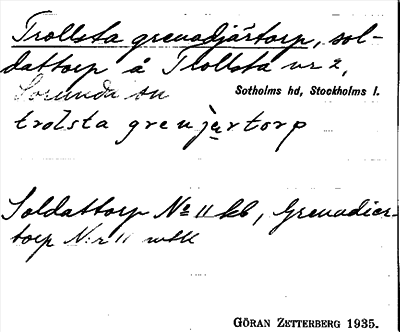 Trollsta grenadjärtorp, sol-
dattorp å Trollsta nr 2,
Sorunda sn Sotholms hd, Stockholms l.
trolsta grenjartorp
Soldattorp No 11 kb, Grenadier-
torp N:r 11 wtlk
GÖRAN ZETTERBERG 1935.